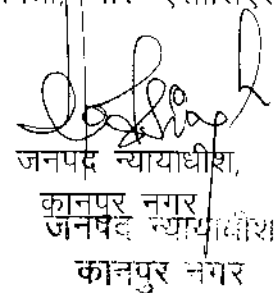 जनपद न्यायाधीश,
कानपुर नगर
जनपद न्यायाधीश
कानपुर नगर